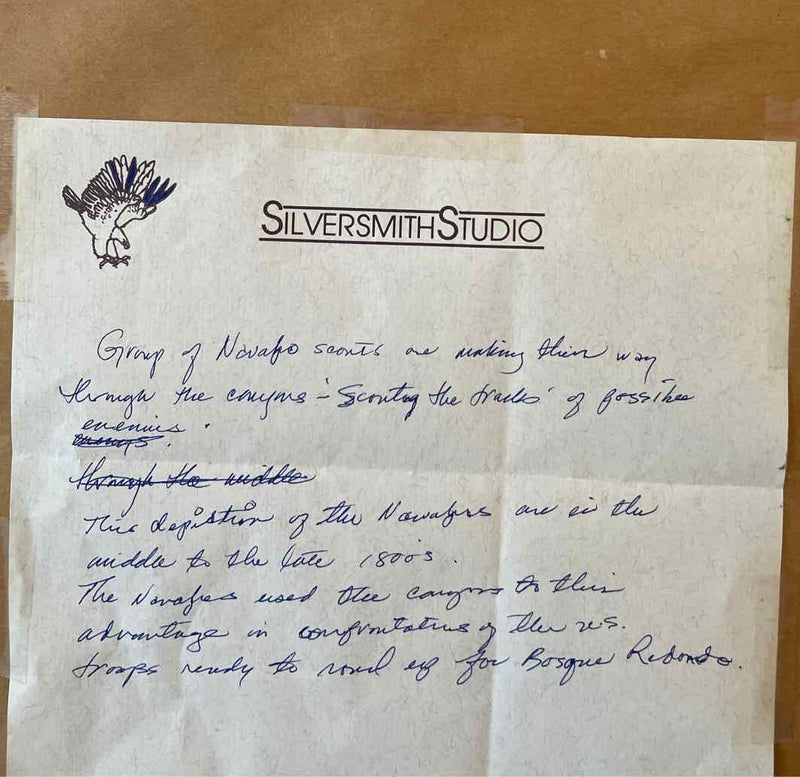 SILVERSMITH STUDIO
Group of Navajo scouts are making their way
through the canyons - 'Scouting the tracks' of possible
enemies.
through the middle
This depiction of the Navajos are in the
middle to the late 1800's.
The Navajos used the canyons to their
advantage in confrontations of the U.S.
troops ready to round up for Bosque Redondo.